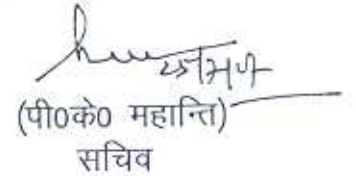 (पी0के0 महान्ति)
सचिव